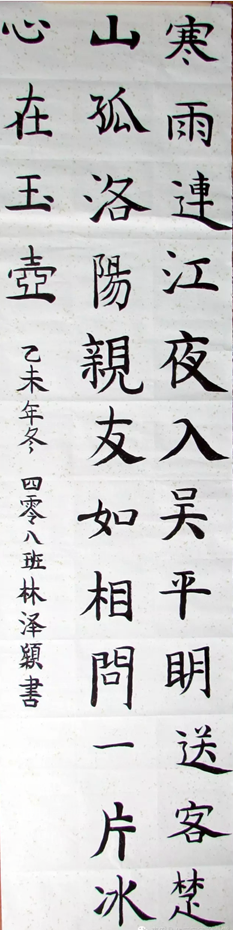 寒雨連江夜入吴平明送客楚
山孤洛陽親友如相問一片冰
心在玉壺
乙未年冬 四零八班林泽颖書